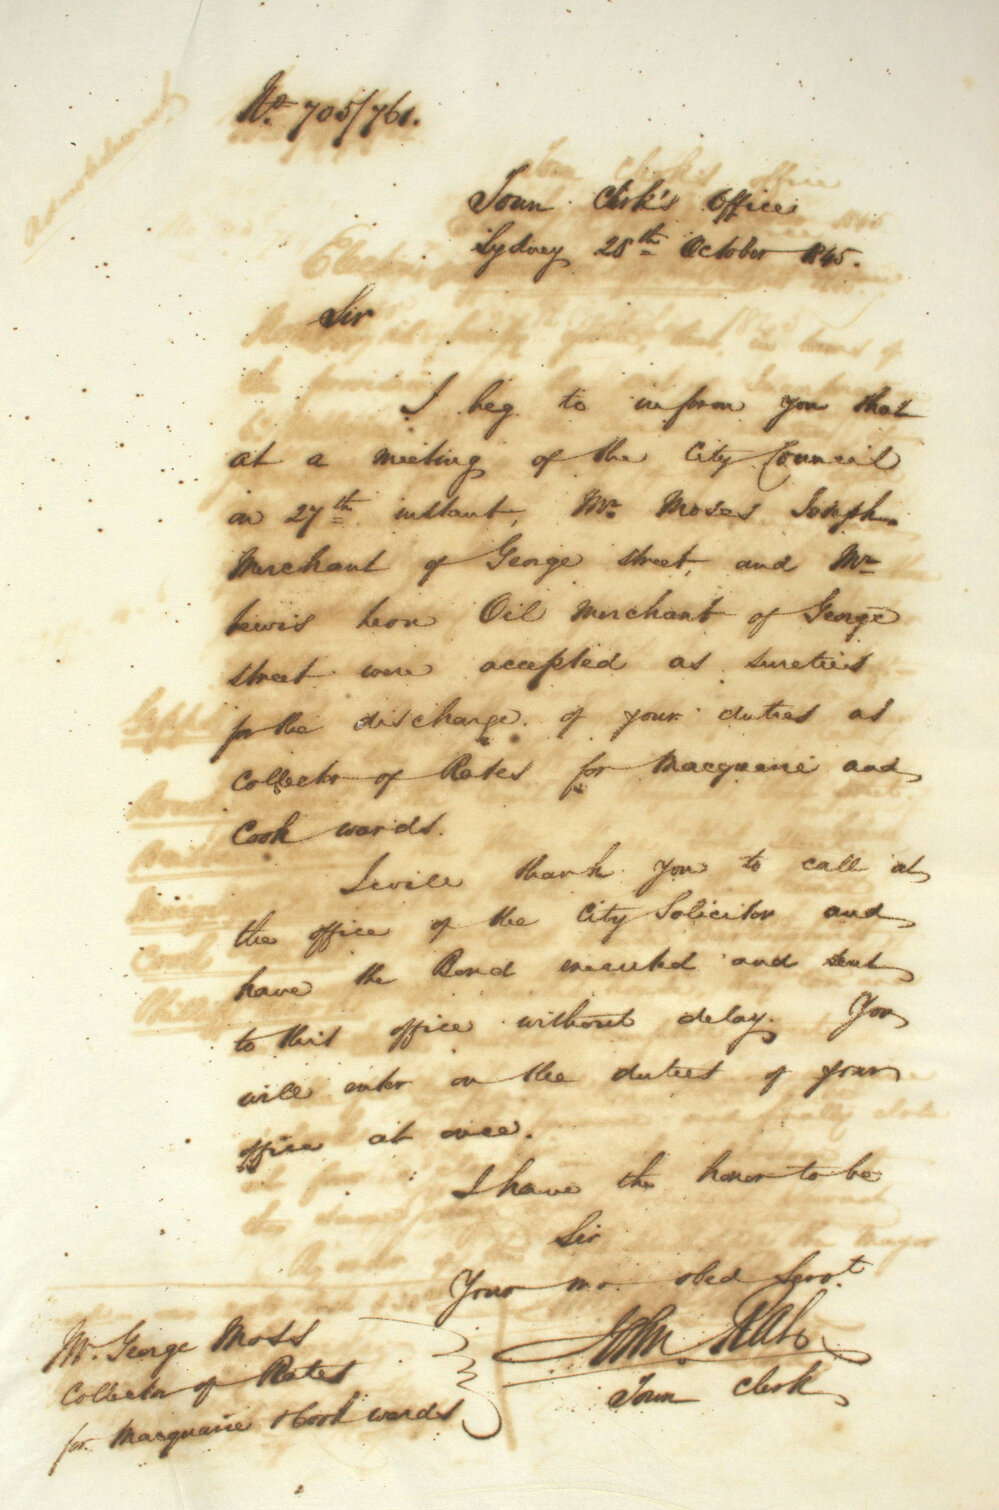 No. 705/761.
Town Clerk's Office
Sydney 28th October 1845.
Sir
I beg to inform you that
at a meeting of the City Council
on 27th instant, Mr. Moses Joseph
Merchant of George street, and Mr
Lewis Leon Oil Merchant of George
street were accepted as sureties
for the discharge of your duties as
Collector of Rates for Macquarie and
Cook wards.
I will thank you to call at
the office of the City Solicitor and
have the Bond executed and sent
to this office without delay. You
will enter on the duties of your
office at once.
I have the honor to be
Sir
Your mo. obed Servt.
John Rae
Town Clerk
Mr. George Moss
Collector of Rates
for Macquarie & Cook wards